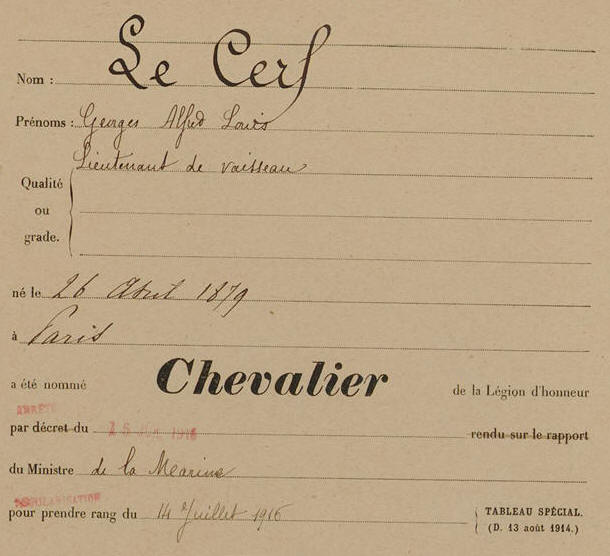 Nom : Le Cerf
Prénoms : Georges Alfred Louis
Lieutenant de vaisseau
Qualité
ou
grade.
né le 26 Avril 1879
à Paris
a été nommé Chevalier de la Légion d'honneur
ARRÊTÉ
par décret du 1916 rendu sur le rapport
du Ministre de la Marine
RÉGULARISATION
pour prendre rang du 14 Juillet 1916
TABLEAU SPÉCIAL.
(D. 13 août 1914.)